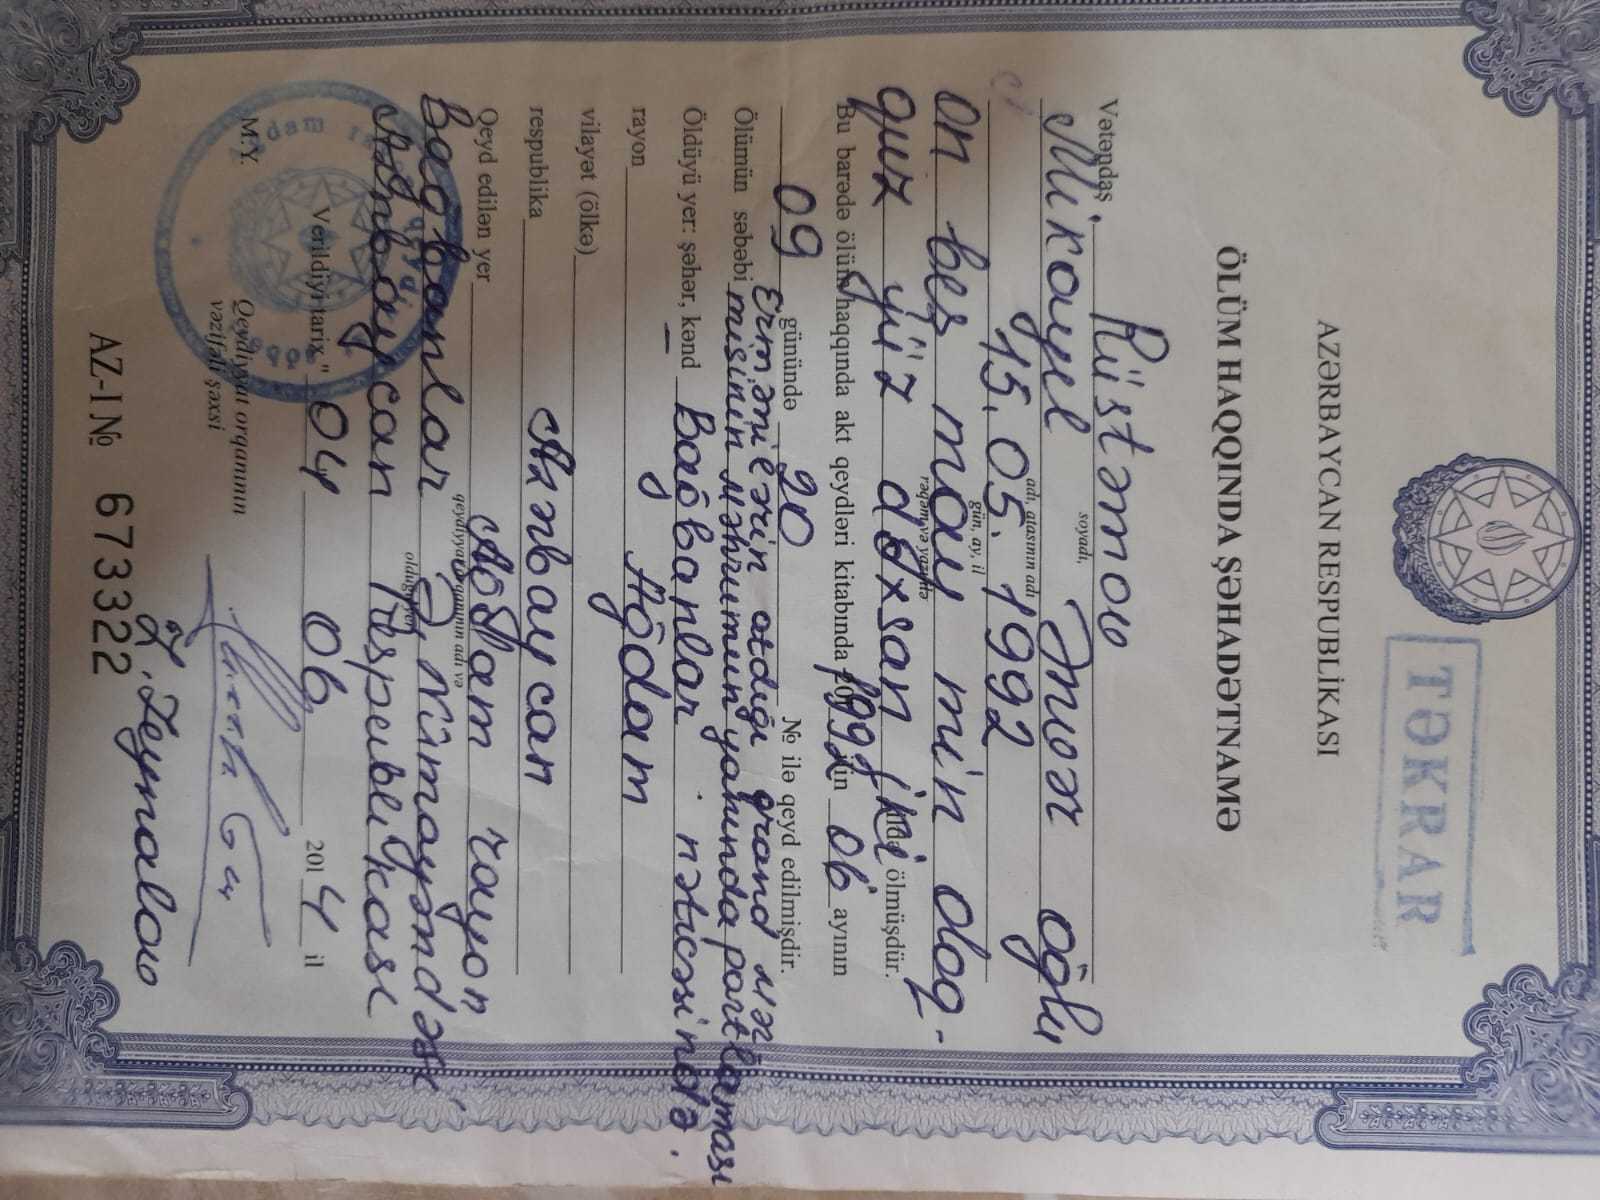 TƏKRAR
AZƏRBAYCAN RESPUBLİKASI
ÖLÜM HAQQINDA ŞƏHADƏTNAMƏ
Vətəndaş Rüstəmov
soyadı,
Mikayıl Ənvər oğlu
adı, atasının adı
15.05.1992
gün, ay, il
on beş may min doq-
rəqəm və yazı ilə
quz yüz doxsan iki ildə ölmüşdür.
Bu barədə ölüm haqqında akt qeydləri kitabında 1992 ilin 06 ayının
09 günündə 20 № ilə qeyd edilmişdir.
Ölümün səbəbi Ermənilərin atdığı qrand mər
misinin məhrumun yanında partlaması
nəticəsində.
Öldüyü yer: şəhər, kənd Bağbanlar
rayon Ağdam
vilayət (ölkə)
respublika Azərbaycan
Qeyd edilən yer Ağdam rayon
qeydiyyat orqanının adı və
Bağbanlar Ə. Nümayəndəsi
olduğu yer
Azərbaycan Respublikası
Verildiyi tarix "04 06 2014 il
M.Y.
Qeydiyyat orqanının
vəzifəli şəxsi
Z. Zeynalov
AZ-I № 673322